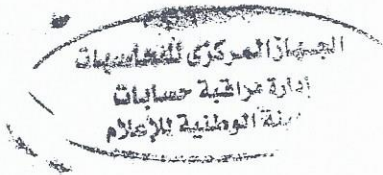 الجهاز المركزى للمحاسبات
إدارة مراقبة حسابات
الوطنية للإعلام